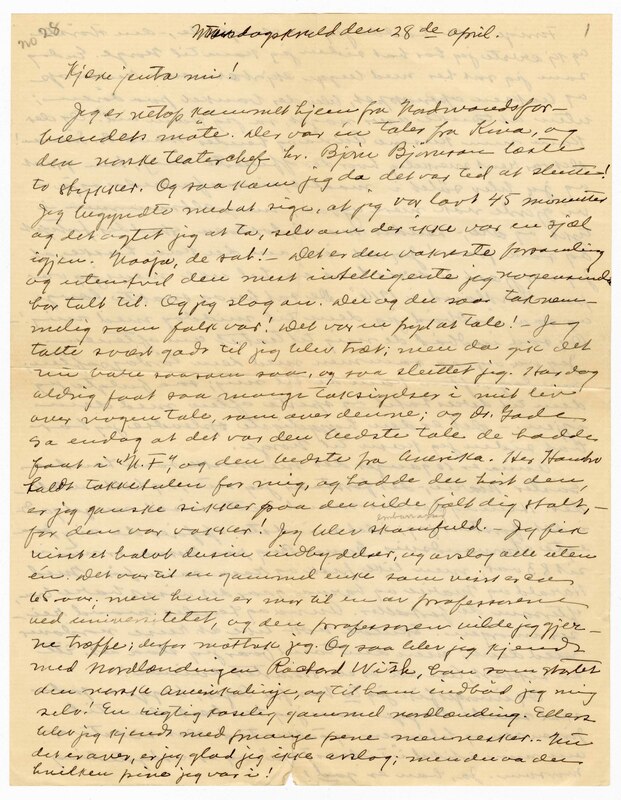 no 28
Mandagskveld den 28 de april.
1
Kjære jenta mi!
Jeg er netop kommet hjem fra Nordmandsfor-
bundets møte. Der var én taler fra Kina, og
den norske teaterchef hr. Bjørn Bjørnson læste
to stykker. Og saa kom jeg da det var tid at slutte!
Jeg begyndte med at sige, at jeg var lovt 45 minutter
og det agtet jeg at ta, selv om der ikke var en sjæl
igjen. Naaja, de sat! – Det er den vakreste forsamling
og uten tvil den mest intelligente jeg nogensinde
har talt til. Og jeg slog an. Du og du saa taknem-
melig som folk var! Det var en fryd at tale! – Jeg
talte svært godt til jeg blev træt; men da gik det
nu bare saasom saa, og saa sluttet jeg. Har dog
aldrig faat saa mange taksigelser i mit liv
over nogen tale, som over denne; og dr. Gade
sa endog at det var den bedste tale de hadde
faat i "N.F.", og den bedste fra Amerika. Her Hambro
holdt takketalen for mig, og hadde du hørt den,
er jeg ganske sikker paa du vilde følt dig stolt, –
for den var vakker! Jeg blev skamfuld. – Jeg fik
visst et halvt dusin indbydelser, og avslog alle uten
én. Det var til en gammel enke som visst er ca
65 aar. men hun er svor til en av professorene
ved universitetet, og den professoren vilde jeg gjer-
ne træffe; derfor mottok jeg. Og saa blev jeg kjendt
med Nordlændingen, han som startet
den norske Amerikalinje, og til ham indbød jeg mig
selv! En rigtig koselig gammel nordlænding. Ellers
blev jeg kjendt med mange pene mennesker. Nu
det er over, er jeg glad jeg ikke avslog; men du aa du
hvilken pine jeg var i!